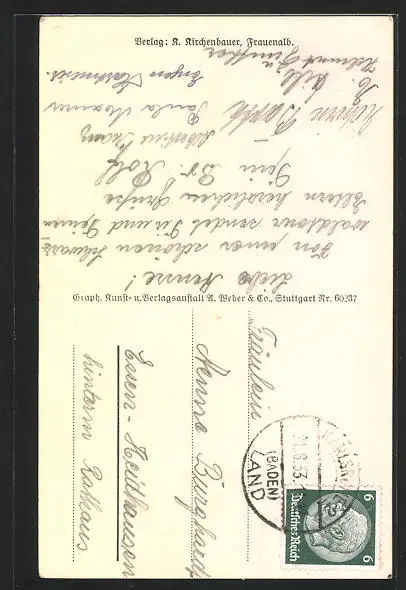 Verlag: K. Kirchenbauer, Frauenalb.
Liebe Aenne!
Von einer schönen Schwarz-
waldtour sendet Dir und Deinen
Eltern herzliche Grüße
Dein Br. Rolf
Eugen
Paula
Graph. Kunst- u. Verlagsanstalt A. Weber & Co., Stuttgart Nr. 60237
Fräulein
Aenne Burghardt
Essen-Heidhausen
hinterm Rathaus
(BADEN)
LAND
Deutsches Reich
6
6